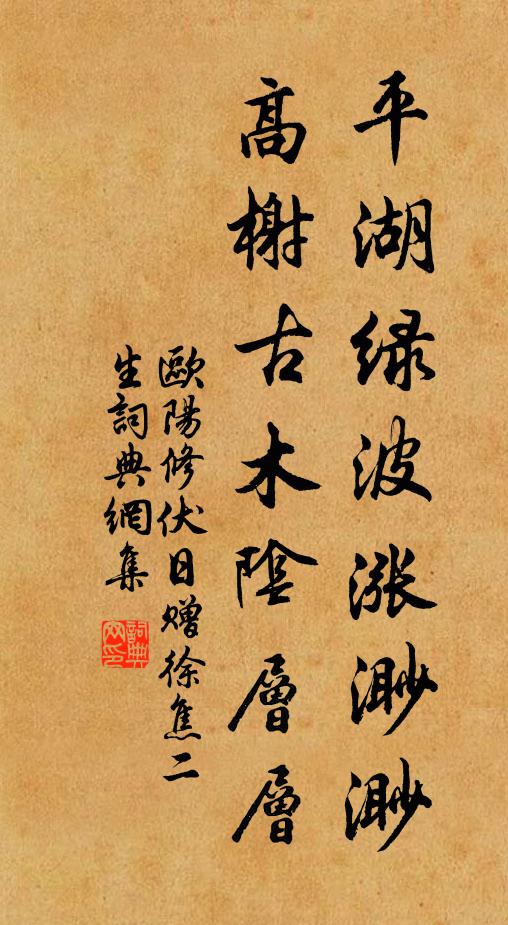 平湖绿波漲渺渺
高榭古木陰層層
歐陽修伏日贈徐焦二
生詞典網集
詞典
网印